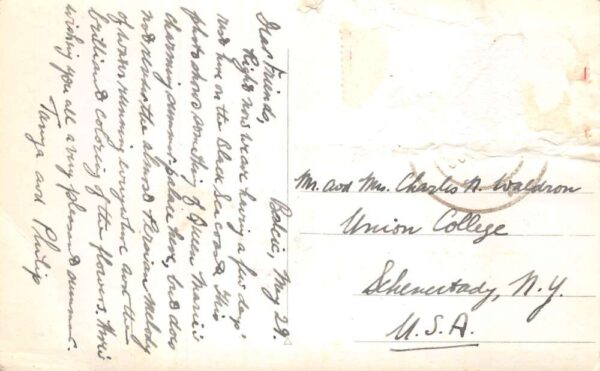 Balcic, May 29.
Dear Friends,
Right now we are having a few days'
rest here on the Black Sea coast. This
photo shows something of Queen Marie's
charming summer palace here, but does
not render the almost melody
of running everywhere and the
brilliant coloring of the flowers.
wishing you all a very pleasant summer.
Tanya and Philip
Mr. and Mrs. Charles N. Waldron
Union College
Schenectady, N.Y.
U.S.A.